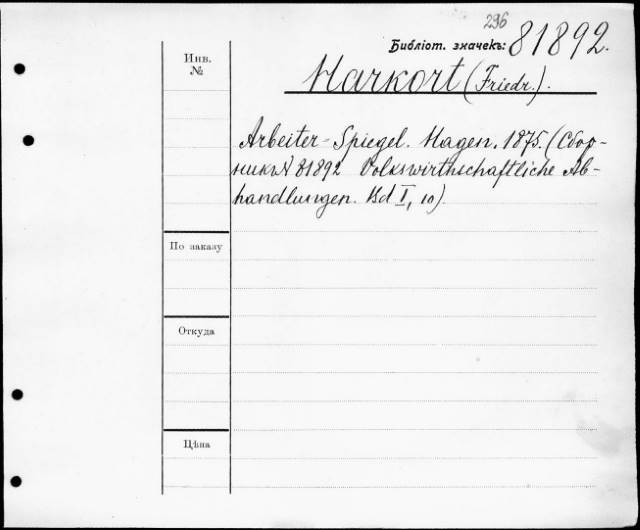 296
Библіот. значекъ: 81892.
Инв. №
Harkort (Friedr.).
Arbeiter-Spiegel. Hagen. 1875. (Сбор-
никъ № 81892 Volkswirthschaftliche Ab-
handlungen. Bd I, 10).
По заказу
Откуда
Цѣна